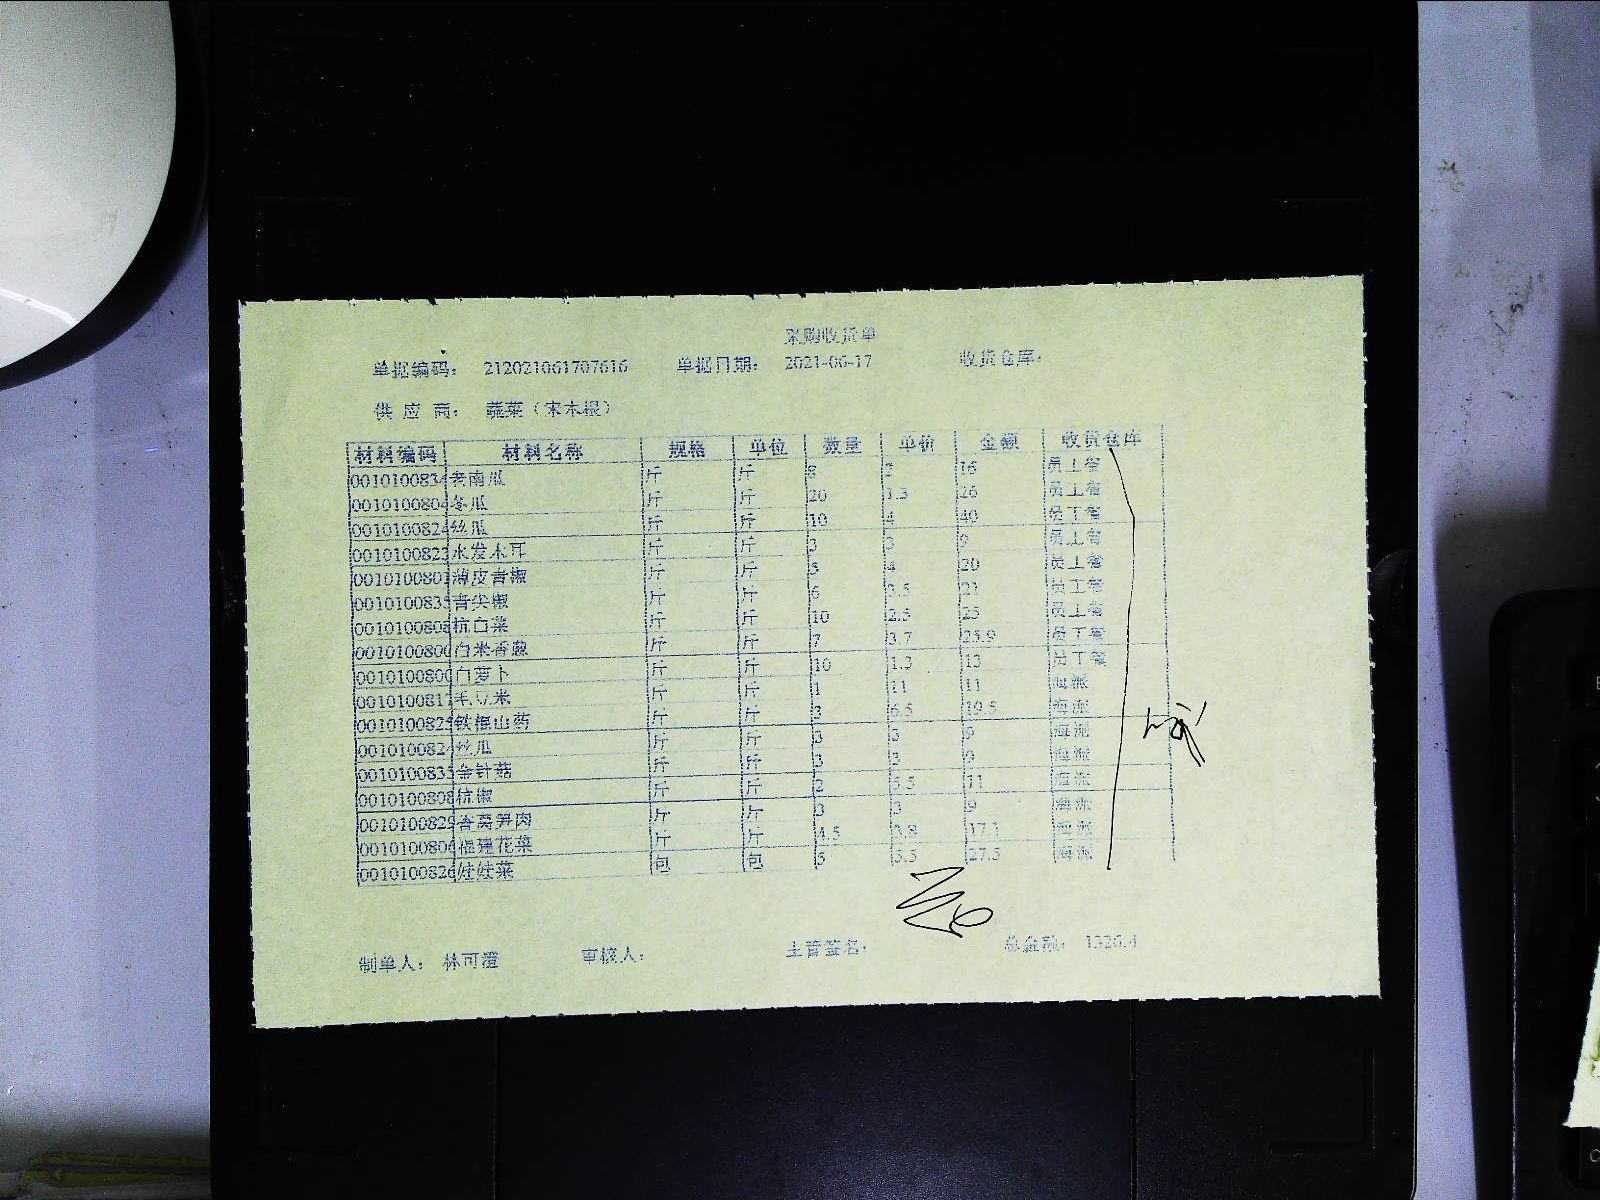 采购收货单
单据编码： 212021061707616 单据日期： 2021-06-17 收货仓库：
供 应 商： 蔬菜（宋木根）
材料编码 材料名称 规格 单位 数量 单价 金额 收货仓库
0010100834 老南瓜 斤 斤 8 2 16 员工餐
0010100804 冬瓜 斤 斤 20 1.3 26 员工餐
0010100824 丝瓜 斤 斤 10 4 40 员工餐
0010100823 水发木耳 斤 斤 3 3 9 员工餐
0010100801 薄皮青椒 斤 斤 5 4 20 员工餐
0010100835 青尖椒 斤 斤 6 3.5 21 员工餐
0010100808 杭白菜 斤 斤 10 2.5 25 员工餐
0010100800 白米香葱 斤 斤 7 3.7 25.9 员工餐
0010100800 白萝卜 斤 斤 10 1.3 13 员工餐
0010100817 毛豆米 斤 斤 1 11 11 海派
0010100825 铁棍山药 斤 斤 3 6.5 19.5 海派
0010100824 丝瓜 斤 斤 3 3 9 海派
0010100835 金针菇 斤 斤 3 3 9 海派
0010100808 杭椒 斤 斤 2 5.5 11 海派
0010100829 香莴笋肉 斤 斤 3 3 9 海派
0010100806 福建花菜 斤 斤 4.5 3.8 17.1 海派
0010100826 娃娃菜 包 包 5 5.5 27.5 海派
制单人： 林可澄 审核人： 主管签名： 总金额： 1326.4